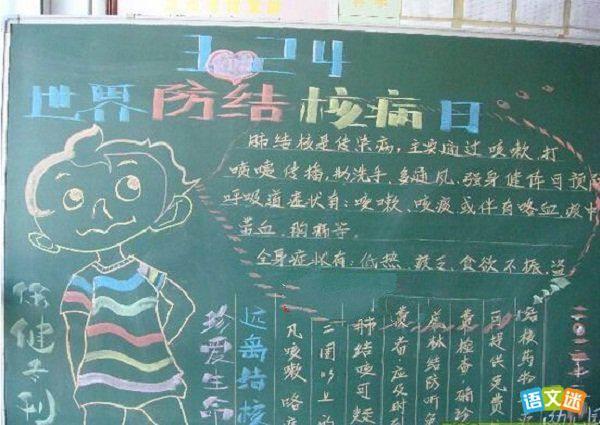 3.24
世界防结核病日
肺结核是传染病,主要通过咳嗽、打
喷嚏传播,勤洗手、多通风、强身健体可预
呼吸道症状有:咳嗽、咳痰或伴有咯血,痰中
带血、胸痛等。
全身症状有:低热、疲乏、食欲不振、盗
保健专刊
珍爱生命
远离结核
凡咳嗽咯痰
二周以上的
肺结核可疑
患者应及时
林结防所免
费检查确诊
可提供免费
结核药物
二〇一二
语文迷